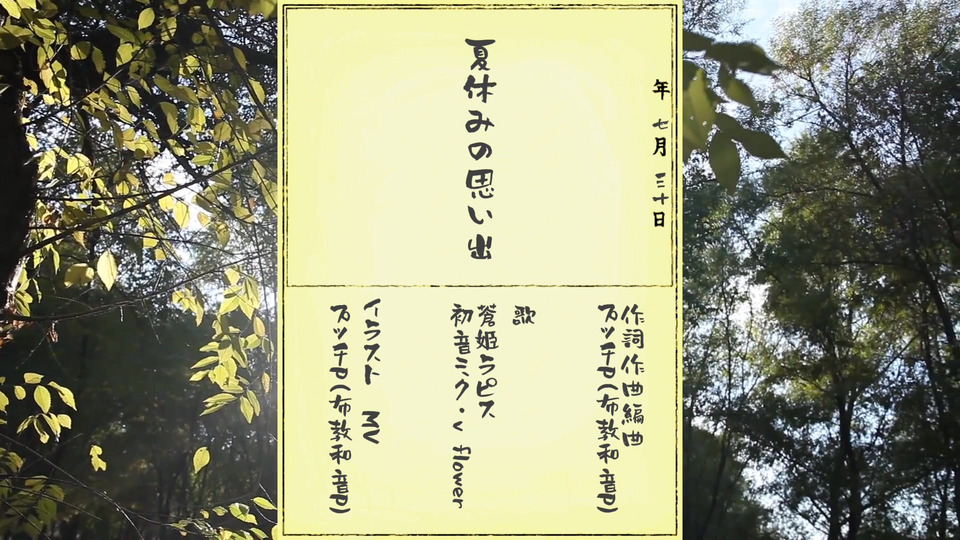 年 七月 三十日
夏休みの思い出
作詞作曲編曲
ズッチャ(布教和音ヤ)
歌
蒼姫ラピス
初音ミク・v flower
イラスト MV
ズッチャ(布教和音ヤ)